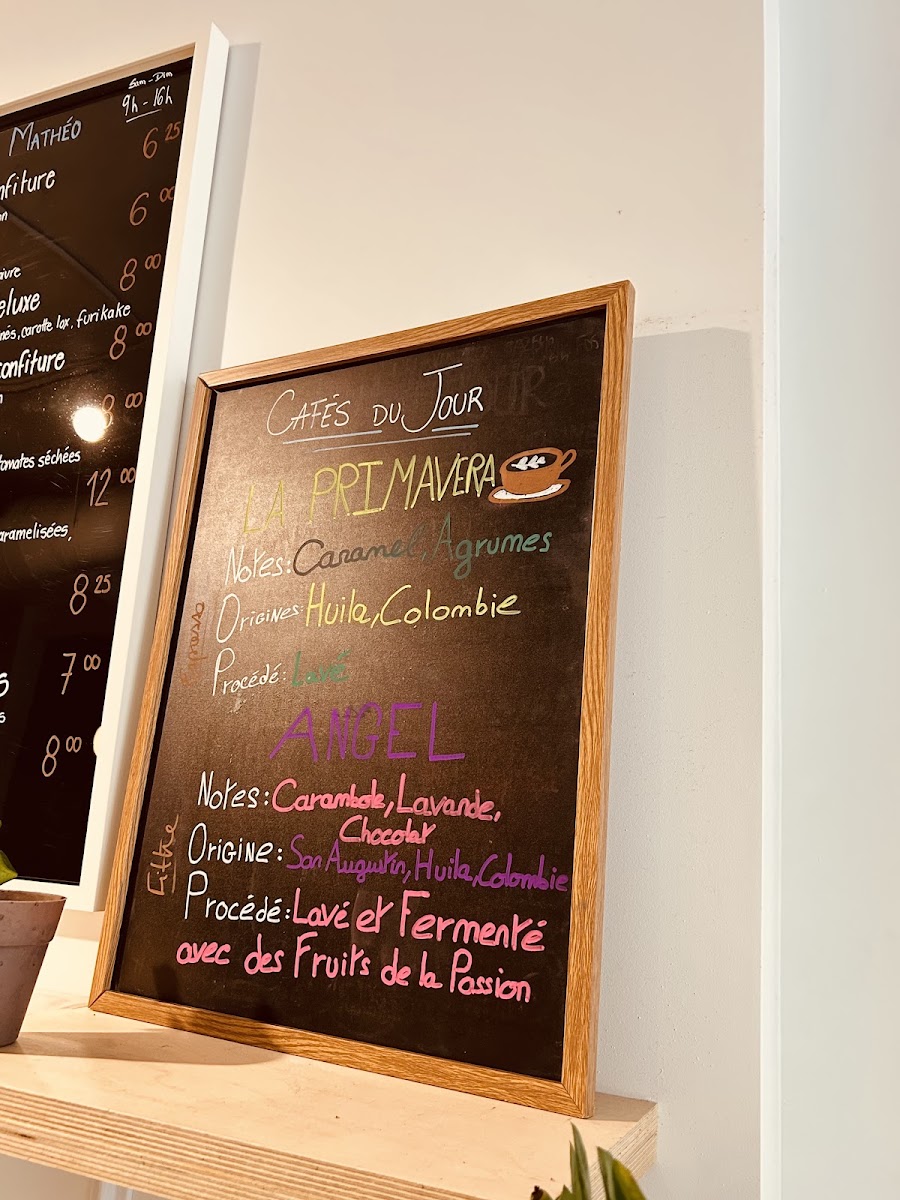 Sam - Dim
9h - 16h
MATHÉO
6 25
nfiture
on
6 00
8 00
eluxe
carotte lox, furikake
8 00
confiture
8 00
tomates séchées
12 00
aramelisées,
8 25
7 00
8 00
CAFÉS DU JOUR
LA PRIMAVERA
Notes: Caramel, Agrumes
Origines: Huila, Colombie
Procédé: Lavé
ANGEL
Notes: Carambole, Lavande,
Chocolat
Filtre
Origine: San Augustin, Huila, Colombie
Procédé: Lavé et Fermenté
avec des Fruits de la Passion